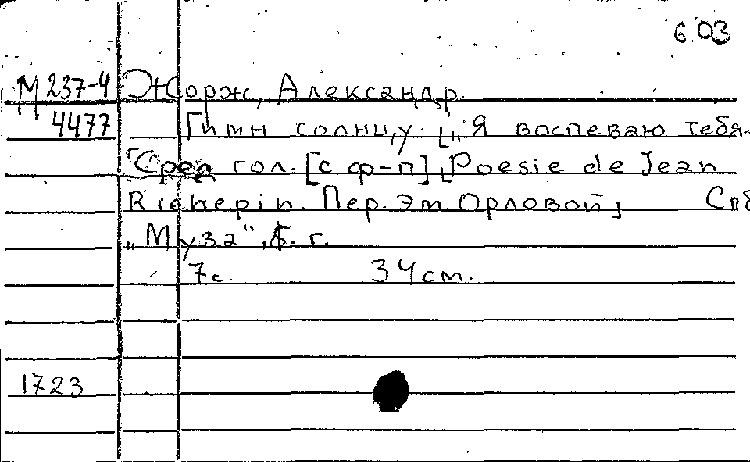 6.03
М 237-4 Жорж, Александр.
4477 Гимн солнцу: [„Я воспеваю тебя.
Сред гол. [с ф-п], [Poesie de Jean
Richepin. Пер. Эм Орловой]
Спб
„Муза", б. г.
7с 34 см.
1723